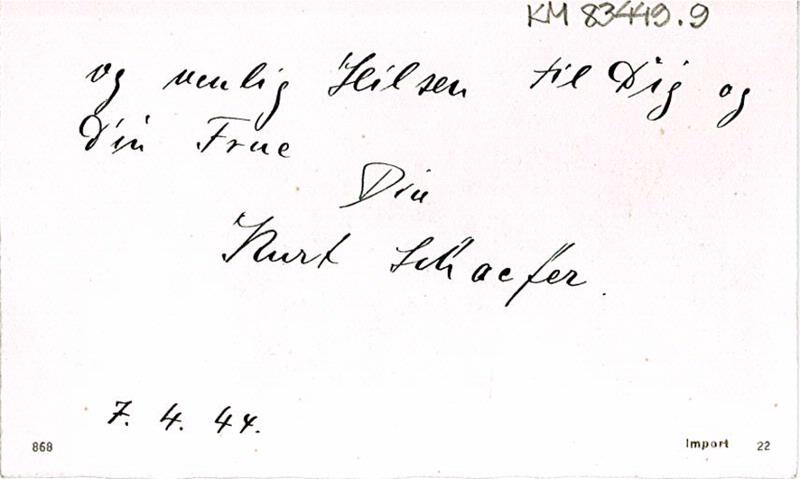 KM 83449.9
og venlig Hilsen til Dig og
Din Frue
Din
Kurt Schaefer.
7. 4. 44.
868
Import 22